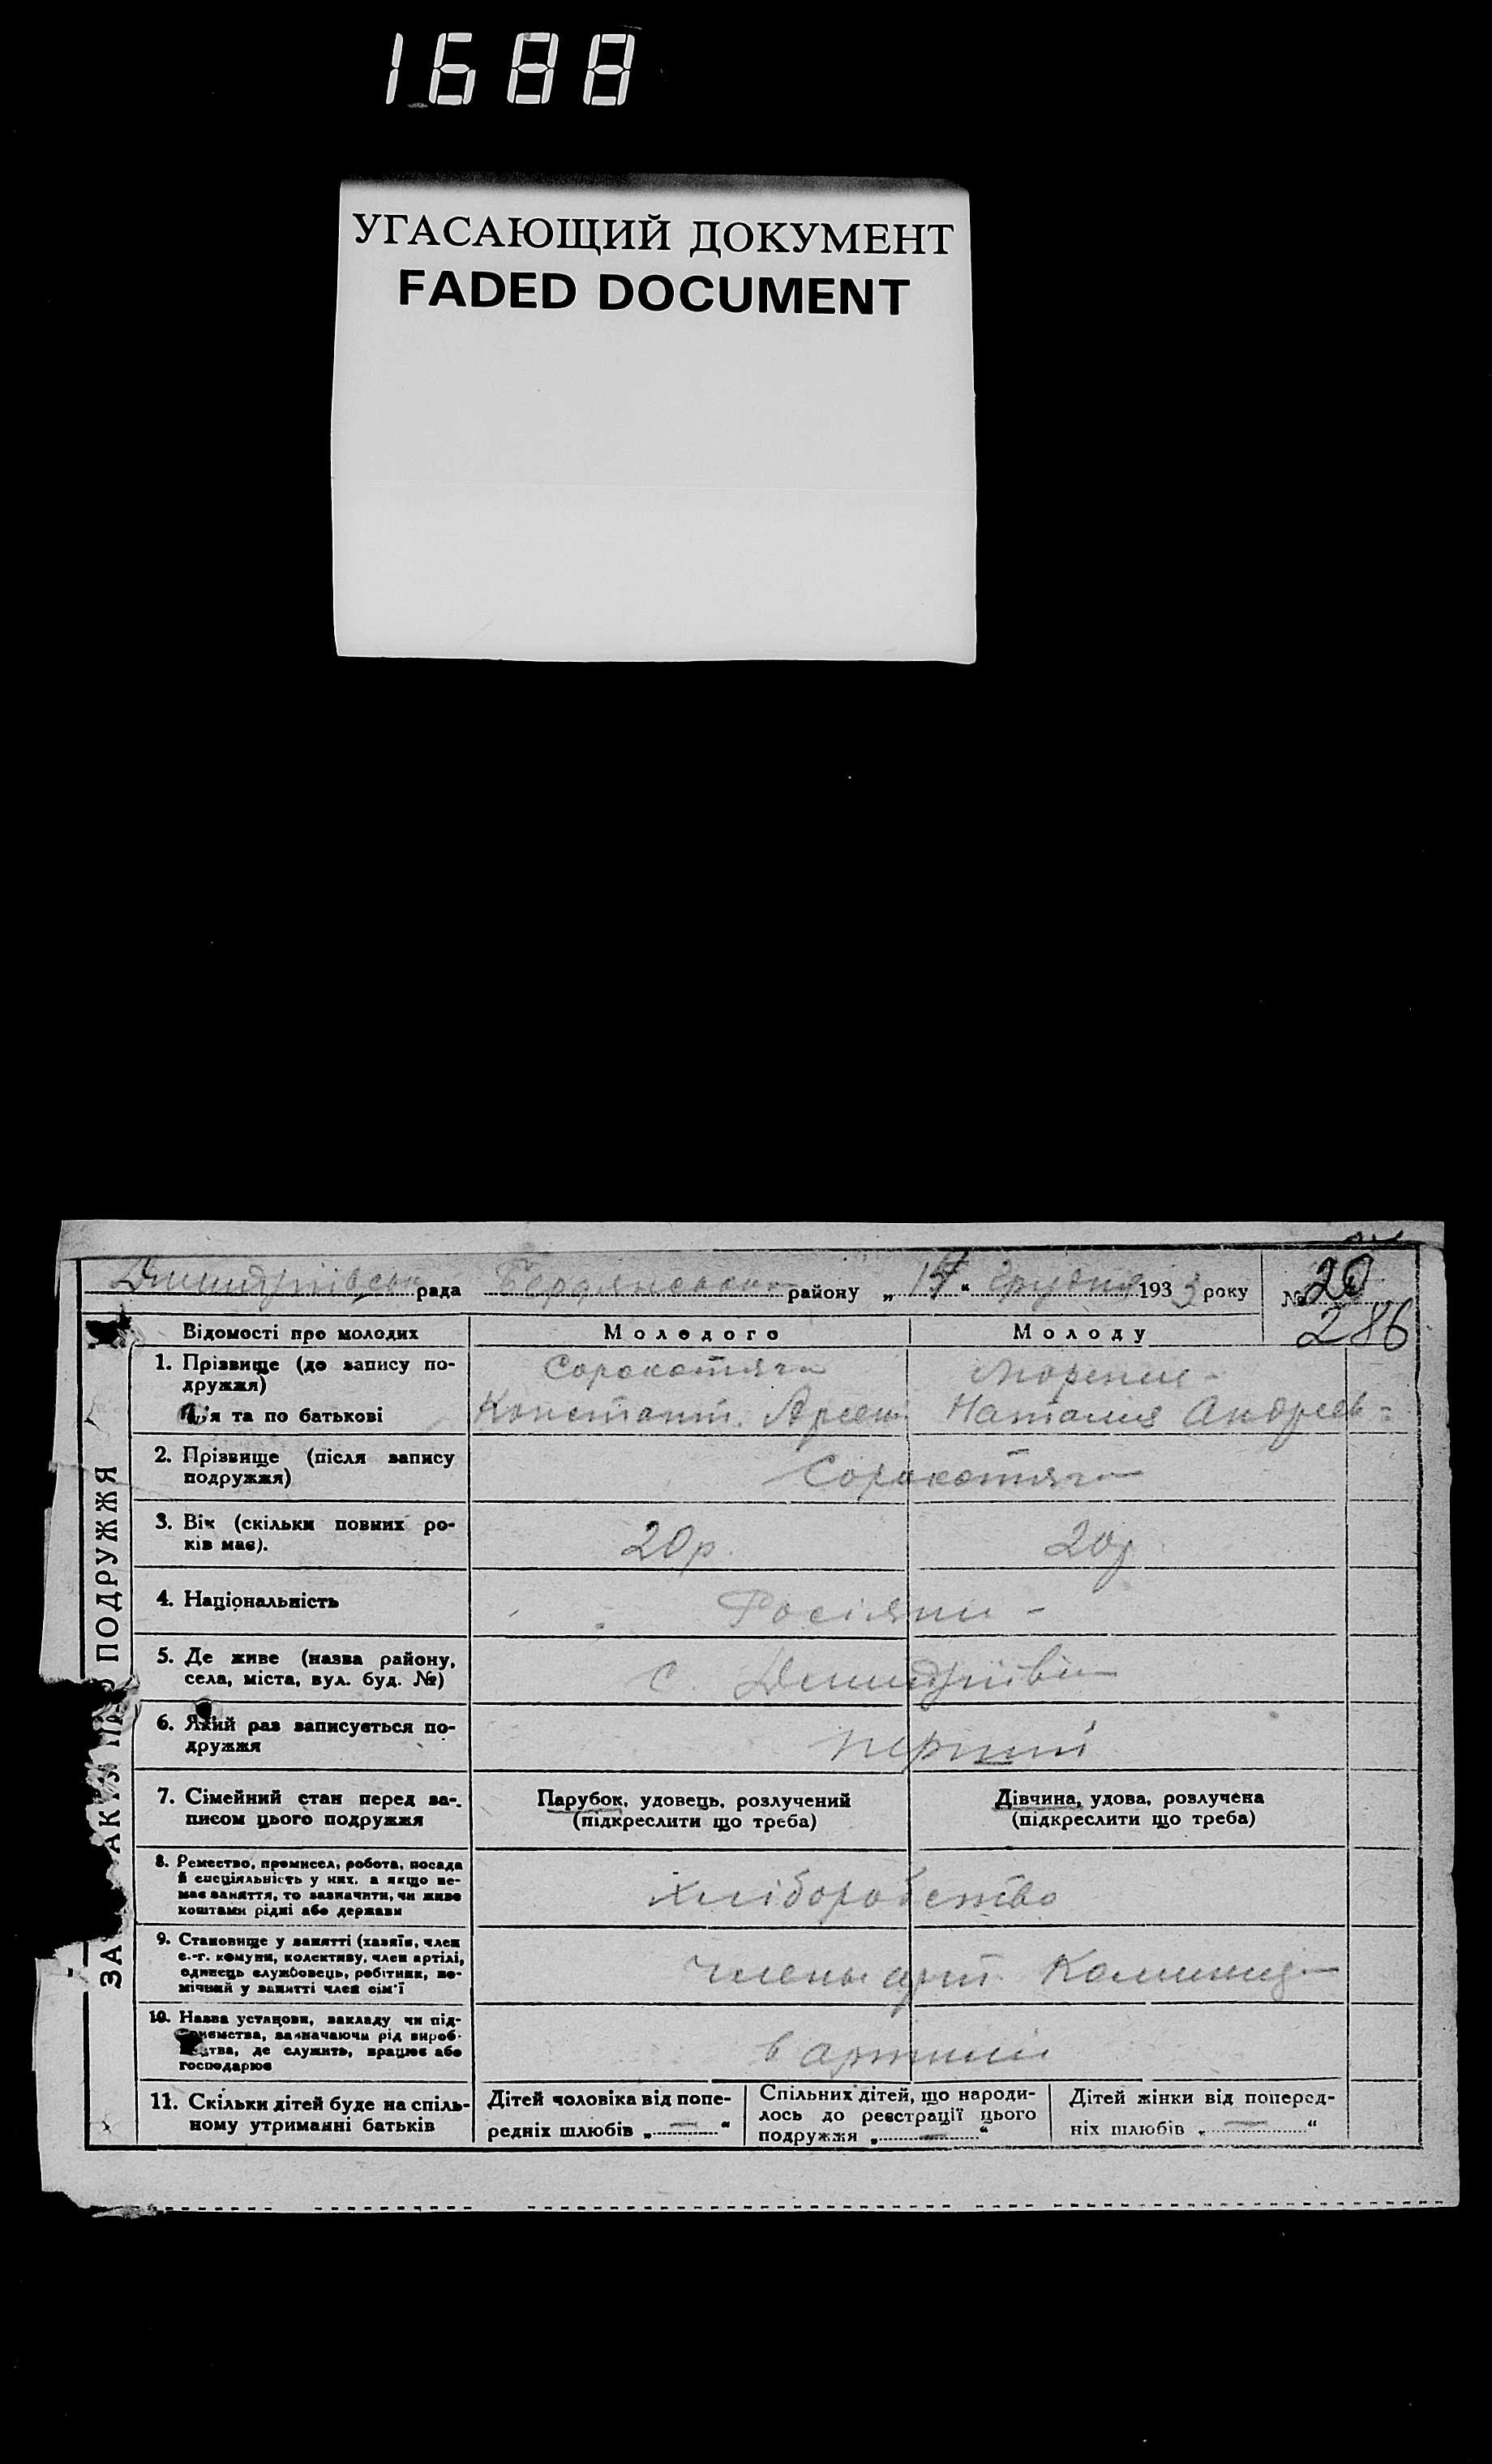 1688
УГАСАЮЩИЙ ДОКУМЕНТ
FADED DOCUMENT
Дмитріївськ рада Бердянського району „ 14 “ грудня 1933 року № 20
286
ПОДРУЖЖЯ
Відомості про молодих Молодого Молоду
1. Прізвище (до запису подружжя) Сорокотяга
та по батькові Констант. Наталия Андреев-
2. Прізвище (після запису подружжя) Сорокотяга
3. Вік (скільки повних років має). 20р. 20р
4. Національність Росіяни -
5. Де живе (назва району, села, міста, вул. буд. №) с. Дмитріївка
6. Який раз записується подружжя перший
7. Сімейний стан перед записом цього подружжя Парубок, удовець, розлучений (підкреслити що треба) Дівчина, удова, розлучена (підкреслити що треба)
8. Ремество, промисел, робота, посада й спеціяльність у них, а якщо немає заняття, то зазначити, чи живе коштами рідні або держави хліборобство
9. Становище у занятті (хазяїн, член с.-г. комуни, колективу, член артілі, одинець службовець, робітник, помічний у занятті член сім'ї члены арт.
10. Назва установи, закладу чи підприємства, зазначаючи рід виробництва, де служить, працює або господарює в артили
11. Скільки дітей буде на спільному утриманні батьків Дітей чоловіка від попередніх шлюбів „ — “ Спільних дітей, що народилось до реєстрації цього подружжя „ — “ Дітей жінки від попередніх шлюбів „ — “